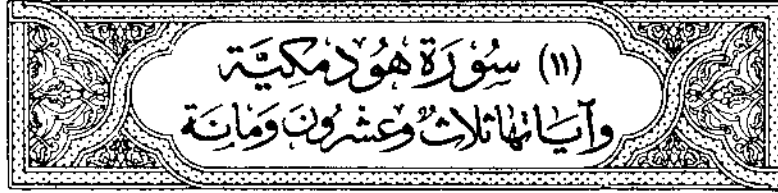 (١١) سُوْرَةْ هُوْدٍ مَكِيَّة
وَآيَاتهَا ثَلاثٌ وَعَشْرُونَ وَمَائَة